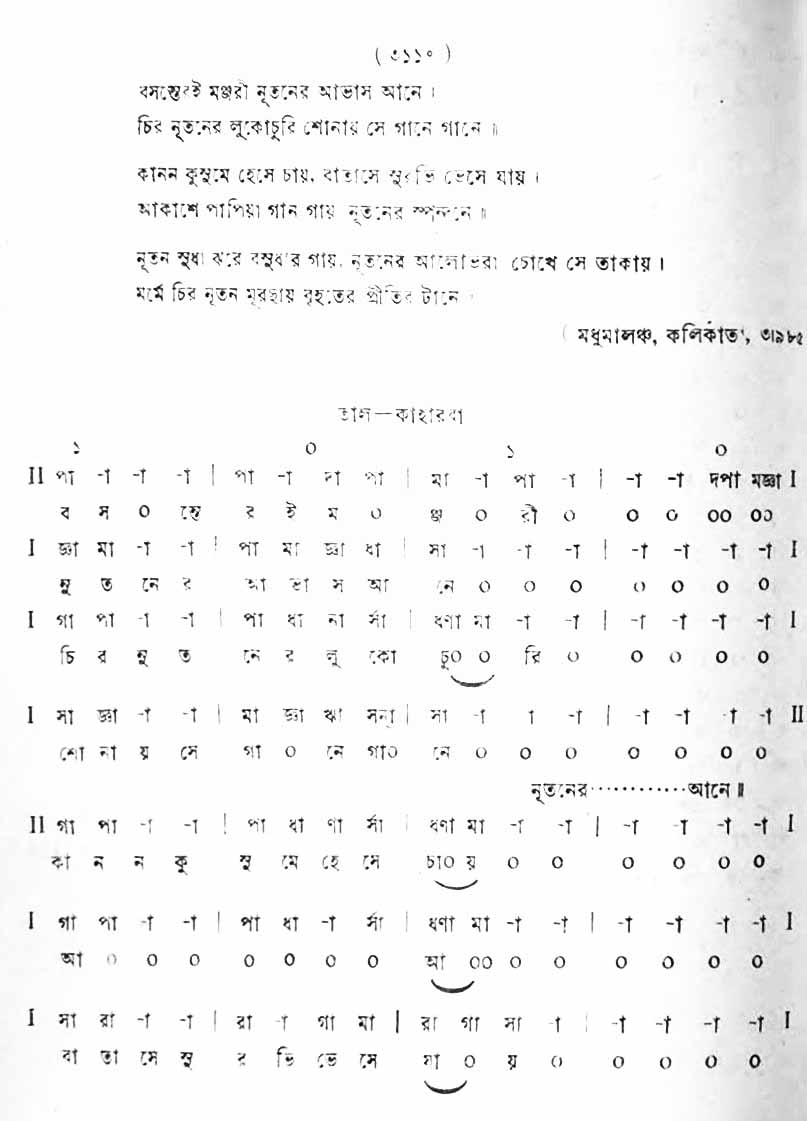 ( ৩১১০ )
বসন্তেরই মঞ্জরী নূতনের আভাস আনে ।
চির নূতনের লুকোচুরি শোনায় সে গানে গানে ॥
কানন কুসুমে হেসে চায়, বাতাসে সুরভি ভেসে যায় ।
আকাশে পাপিয়া গান গায় নূতনের স্পন্দনে ॥
নূতন সুধা ঝরে বসুধার গায়, নূতনের আলোভরা চোখে সে তাকায় ।
মর্মে চির নূতন মূরছায় বৃহতের প্রীতির টানে ।
( মধুমালঞ্চ, কলিকাতা, ৩।৯৮৫
তাল—কাহারবা
১ ০ ১ ০
II পা -া -া -া | পা -া দা পা | মা -া পা -া | -া -া দপা মজ্ঞা I
ব স ০ ন্তে র ই ম ০ ঞ্জ ০ রী ০ ০ ০ ০০ ০০
I জ্ঞা মা -া -া | পা মা জ্ঞা ঋা | সা -া -া -া | -া -া -া -া I
নু ত নে র আ ভা স আ নে ০ ০ ০ ০ ০ ০ ০
I গা পা -া -া | পা ধা না র্সা | ধণা মা -া -া | -া -া -া -া I
চি র নু ত নে র লু কো চু০ ০ রি ০ ০ ০ ০ ০
I সা জ্ঞা -া -া | মা জ্ঞা ঋা সন্া | সা -া া -া | -া -া -া -া II
শো না য় সে গা ০ নে গা০ নে ০ ০ ০ ০ ০ ০ ০
নূতনের············আনে ॥
II গা পা -া -া | পা ধা ণা র্সা | ধণা মা -া -া | -া -া -া -া I
কা ন ন কু সু মে হে সে চা০ য় ০ ০ ০ ০ ০ ০
I গা পা -া -া | পা ধা -া র্সা | ধণা মা -া -া | -া -া -া -া I
আ ০ ০ ০ ০ ০ ০ ০ আ ০০ ০ ০ ০ ০ ০ ০
I সা রা -া -া | রা -া গা মা | রা গা সা -া | -া -া -া -া I
বা তা সে সু র ভি ভে সে যা ০ য় ০ ০ ০ ০ ০